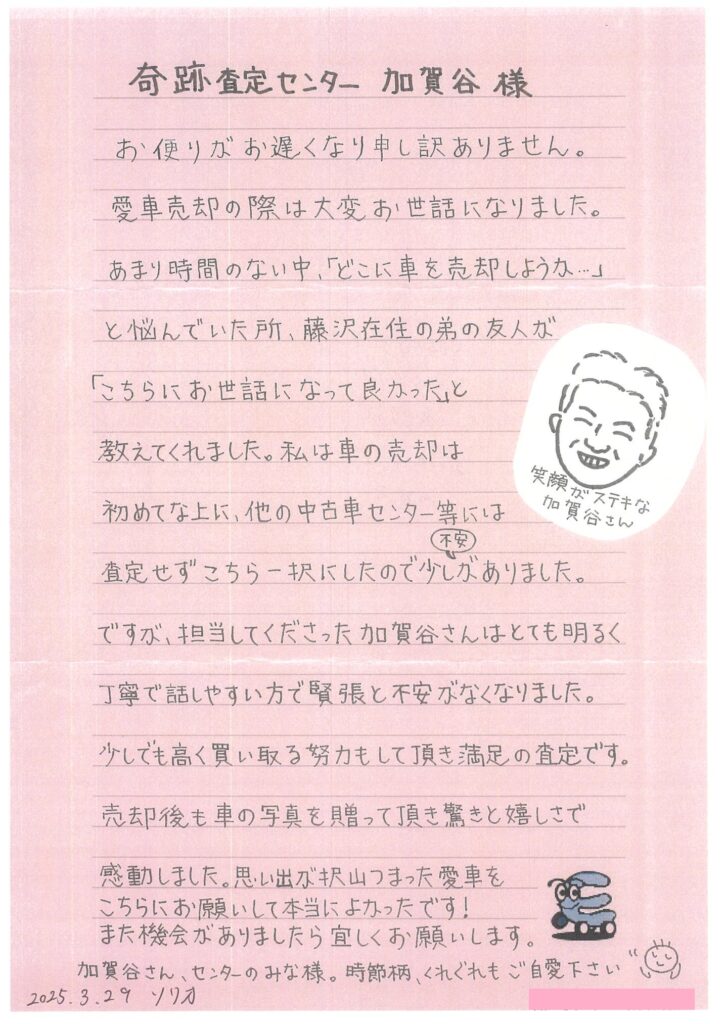 奇跡査定センター 加賀谷 様
お便りがお遅くなり申し訳ありません。
愛車売却の際は大変お世話になりました。
あまり時間のない中、「どこに車を売却しようか…」
と悩んでいた所、藤沢在住の弟の友人が
「こちらにお世話になって良かった」と
教えてくれました。私は車の売却は
初めてな上に、他の中古車センター等には
査定せずこちら一択にしたので少し不安がありました。
ですが、担当してくださった加賀谷さんはとても明るく
丁寧で話しやすい方で緊張と不安がなくなりました。
少しでも高く買い取る努力もして頂き満足の査定です。
売却後も車の写真を贈って頂き驚きと嬉しさで
感動しました。思い出が沢山つまった愛車を
こちらにお願いして本当によかったです!
また機会がありましたら宜しくお願いします。
加賀谷さん、センターのみな様。時節柄、くれぐれもご自愛下さい
2025.3.29 ソリオ
笑顔がステキな
加賀谷さん